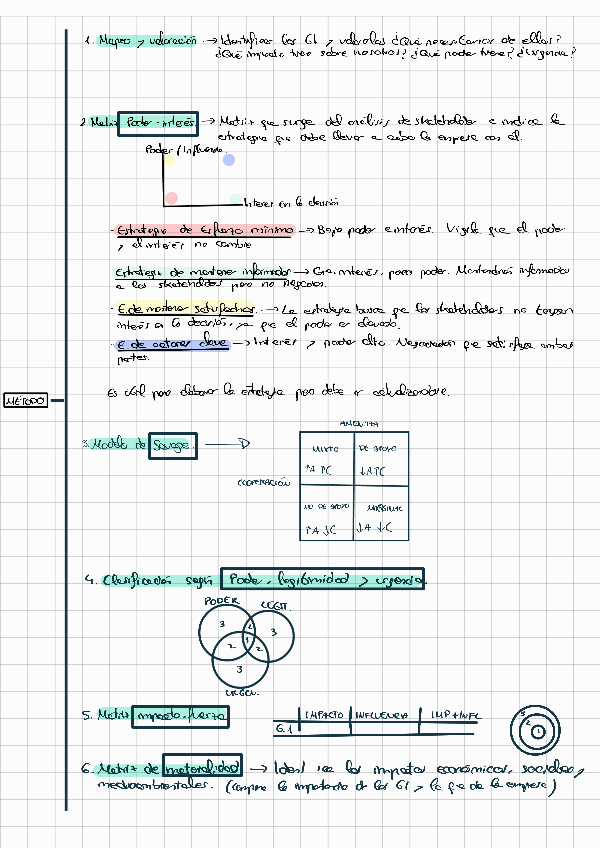 1. Mapeo y valoración → Identificar los GI y valorarlos ¿Qué necesitamos de ellos?
¿Qué impacto tienen sobre nosotros? ¿Qué poder tienen? ¿Urgencia?
2. Matriz Poder-interés → Matriz que surge del análisis de stakeholders e indica la
estrategia que debe llevar a cabo la empresa con él.
Poder/Influencia
Interés en la decisión
· Estrategia de Esfuerzo mínimo → Bajo poder e interés. Vigila que el poder
y el interés no cambie
Estrategia de mantener informados → Gran interés, poco poder. Mantenerlos informados
a los stakeholders pero no
· E. de mantener satisfechos. → La estrategia busca que los stakeholders no tengan
interés en la decisión, ya que el poder es elevado.
· E. de actores clave → Interés y poder alto. Negociación que satisfaga ambas
partes.
Es útil para elaborar la estrategia pero debe ir actualizándose.
MÉTODO
AMENAZA
3. Modelo de Savage. →
MIXTO DE APOYO
↑A ↑C ↓A↑C
COOPERACIÓN
NO DE APOYO MARGINAL
↑A ↓C ↓A ↓C
4. Clasificación según Poder, legitimidad y urgencia.
PODER LEGIT.
3 2 3
1
2 2
3
URGEN.
5. Matriz impacto-fuerza IMPACTO INFLUENCIA IMP+INFL
G.1
3 2 1
6. Matriz de materialidad → Identificar los impactos económicos, sociales y
medioambientales. (compara la importancia de los GI y la de la empresa)